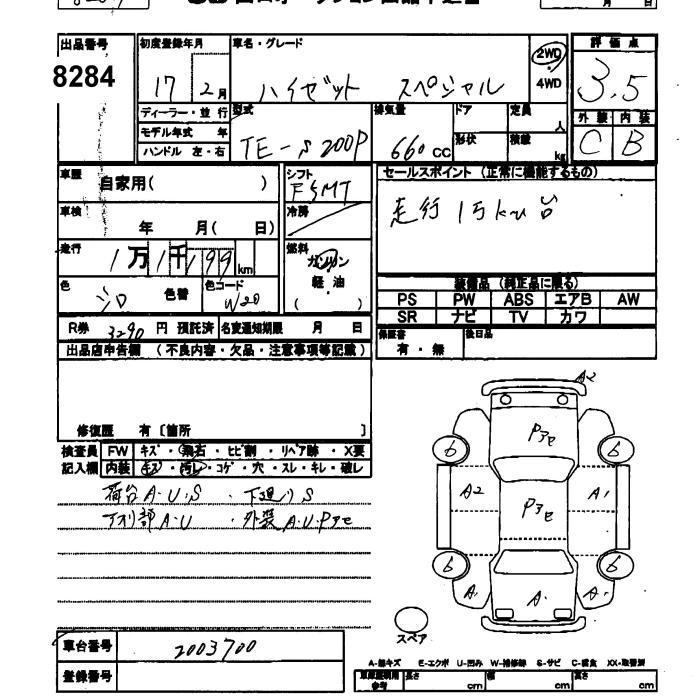 出品番号
8284
初度登録年月
17年2月
車名・グレード
ハイゼット スペシャル
2WD
4WD
評価点
3.5
ディーラー・並行
モデル年式 年
ハンドル 左・右
型式
TE-S200P
排気量
660CC
ドア
形状
定員
人
積載
kg
外装 内装
C B
車歴
自家用( )
シフト
F5MT
冷房
セールスポイント (正常に機能するもの)
走行1万km台
車検
年 月( 日)
走行
1万1千199km
燃料
ガソリン
軽油
( )
色
シロ
色替
色コード
W20
装備品 (純正品に限る)
PS PW ABS エアB AW
SR ナビ TV カワ
R券 3290円 預託済
名変通知期限 月 日
保証書
有・無
後日品
出品店申告欄 (不良内容・欠品・注意事項等記載)
修復歴 有〔箇所 〕
検査員
記入欄
FW キズ・飛石・ヒビ割・リペア跡・X要
内装 キズ・汚レ・コゲ・穴・スレ・キレ・破レ
荷台A.U.S ・下廻りS
アオリ部A.U ・外装A.U.Pアセ
A2
Pアセ
6 6
A2
Pアセ
A1
6 6
A1
A1
A1
スペア
車台番号
2003700
登録番号
A-線キズ E-エクボ U-凹み W-補修跡 S-サビ C-腐食 XX-取替済
車庫証明用
参考
長さ cm
幅 cm
高さ cm